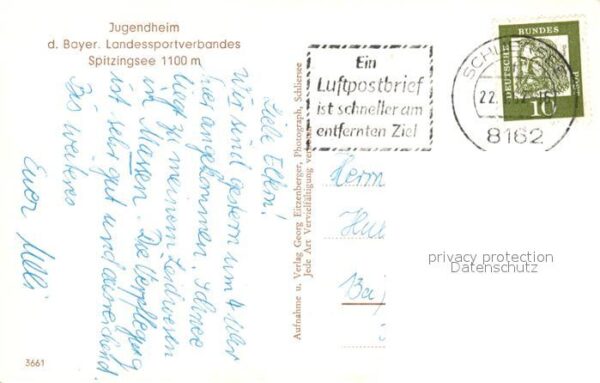 Jugendheim
d. Bayer. Landessportverbandes
Spitzingsee 1100 m
Ein
Luftpostbrief
ist schneller am
entfernten Ziel
SCHLIERSEE
22.
8162
DEUTSCHE BUNDESPOST
10
Liebe Eltern!
Wir sind gestern um 4 Uhr
hier angekommen. Schnee
liegt zu meinem Leidwesen
in Massen. Die Verpflegung
ist sehr gut und ausreichend.
Bis weiteres
Euer
Aufnahme u. Verlag Georg Eitzenberger, Photograph, Schliersee
Jede Art Vervielfältigung
privacy protection
Datenschutz
3661